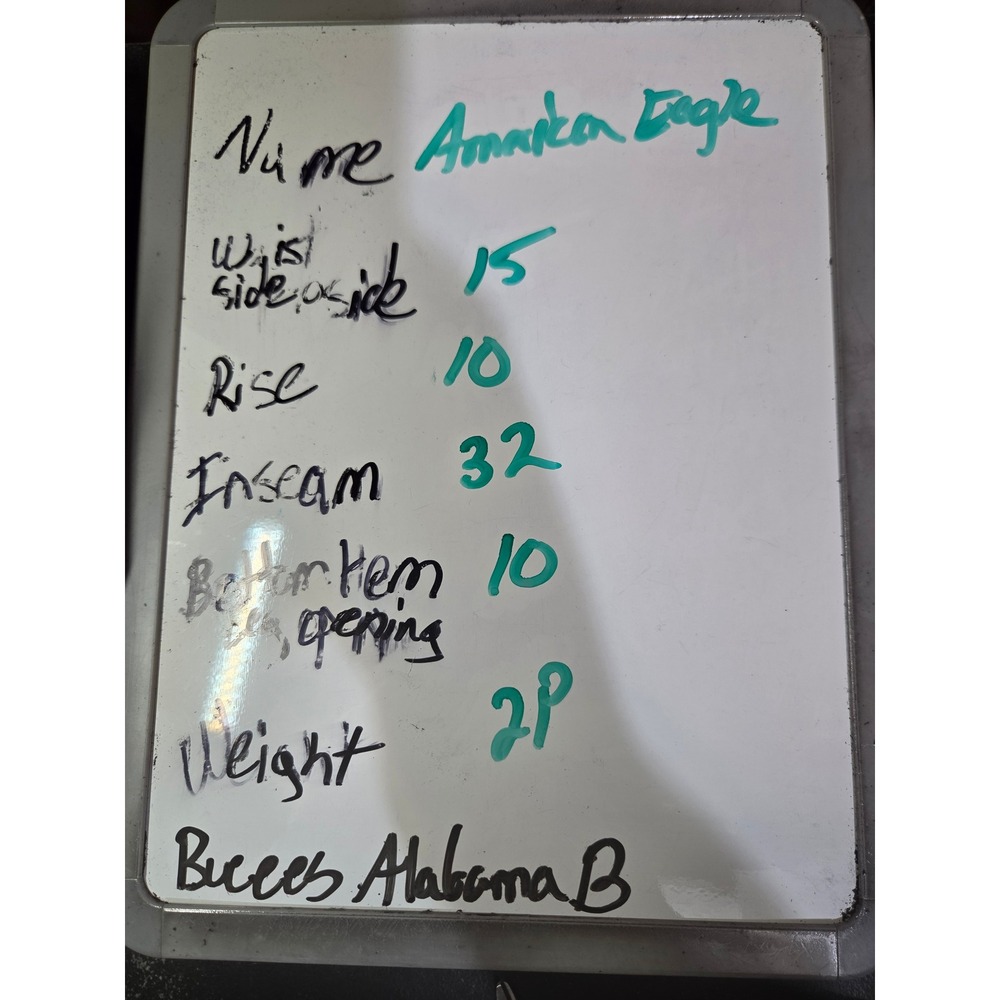 Name American Eagle
Waist
side to side 15
Rise 10
Inseam 32
Bottom Hem 10
leg opening
Weight 2P
Bucees Alabama B